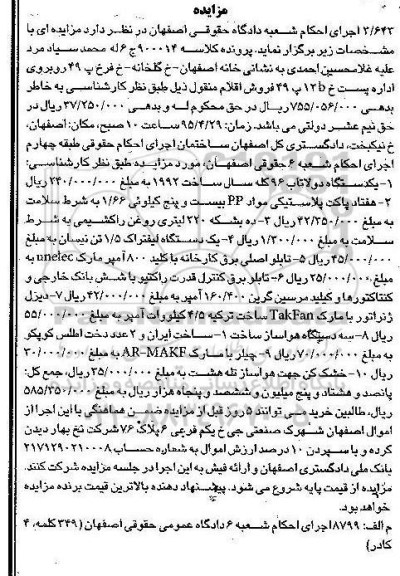 مزایده
۳/۶۴۳ اجرای احکام شعبه دادگاه حقوقی اصفهان در نظر دارد مزایده ای با
مشخصات زیر برگزار نماید. پرونده کلاسه ۹۰۰۰۱۴ ج ۶ له محمد سیاد مرد
علیه غلامحسین احمدی به نشانی خانه اصفهان-خ گلخانه-خ فرخ پ ۴۹ روبروی
اداره پست خ ۱۲b پ ۴۹ فروش اقلام منقول ذیل طبق نظر کارشناسی به خاطر
بدهی ۷۵۵/۰۵۶/۰۰۰ ریال در حق محکوم له و بدهی ۳۷/۲۵۰/۰۰۰ ریال در
حق نیم عشر دولتی می باشد. زمان: ۹۵/۴/۲۹ ساعت ۱۰ صبح، مکان: اصفهان،
خ نیکبخت، دادگستری کل اصفهان ساختمان اجرای احکام حقوقی طبقه چهارم
اجرای احکام شعبه ۶ حقوقی اصفهان، مورد مزایده طبق نظر کارشناسی:
۱-یک دستگاه دولاتاب ۹۶ کله سال ساخت ۱۹۹۲ به مبلغ ۲۴۰/۰۰۰/۰۰۰ ریال
۲-هفتاد پاکت پلاستیکی مواد PP بیست و پنج کیلوئی ۱/۶۶ به شرط سلامت
به مبلغ ۴۲/۳۵۰/۰۰۰ ریال ۳-ده بشکه ۲۲۰ لیتری روغن راکشیمی به شرط
سلامت به مبلغ ۱/۳۰۰/۰۰۰ ریال ۴-یک دستگاه لیفتراک ۱/۵ تن نیسان به مبلغ
۴۵/۰۰۰/۰۰۰ ریال ۵-تابلو اصلی برق کارخانه با کلید ۸۰۰ آمپر مارک unelec به
مبلغ ۲۵/۰۰۰/۰۰۰ ریال ۶-تابلو برق کنترل قدرت راکتیو با شش بانک خارجی و
کنتاکتورها و کیلید مرسین گرین ۱۶۰/۴۰۰ آمپر به مبلغ ۴۲/۰۰۰/۰۰۰ ریال ۷-دیزل
ژنراتور با مارک TakFan ساخت ترکیه ۴/۵ کیلوات آمپر به مبلغ ۵۵/۰۰۰/۰۰۰
ریال ۸-سه دستگاه هواساز ساخت ۱-ساخت ایران و ۲ عدد دخت اطلس کوپکو
به مبلغ ۷۰/۰۰۰/۰۰۰ ریال ۹-چیلر با مارک AR-MAKF به مبلغ ۳۰/۰۰۰/۰۰۰
ریال ۱۰-خشک کن جهت هواساز تله هشت به مبلغ ۳۵/۰۰۰/۰۰۰ ریال، جمع کل:
پانصد و هشتاد و پنج میلیون و ششصد و پنجاه هزار ریال به مبلغ ۵۸۵/۶۵۰/۰۰۰
ریال، طالبین خرید می توانند ۵ روز قبل از مزایده ضمن هماهنگی با این اجرا از
اموال اصفهان شهرک صنعتی جی خ یکم فرعی ۶ پلاک ۷۶ شرکت نخ بهار دیدن
کرده و با سپردن ۱۰ درصد ارزش اموال به شماره حساب ۲۱۷۱۲۹۰۲۱۰۰۰۸
بانک ملی دادگستری اصفهان و ارائه فیش به این اجرا در جلسه مزایده شرکت کنند.
مزایده از قیمت پایه شروع می شود. پیشنهاد دهنده بالاترین قیمت برنده مزایده
خواهد بود.
م الف: ۸۷۹۹ اجرای احکام شعبه ۶ دادگاه عمومی حقوقی اصفهان (۳۴۹ کلمه، ۴
کادر)